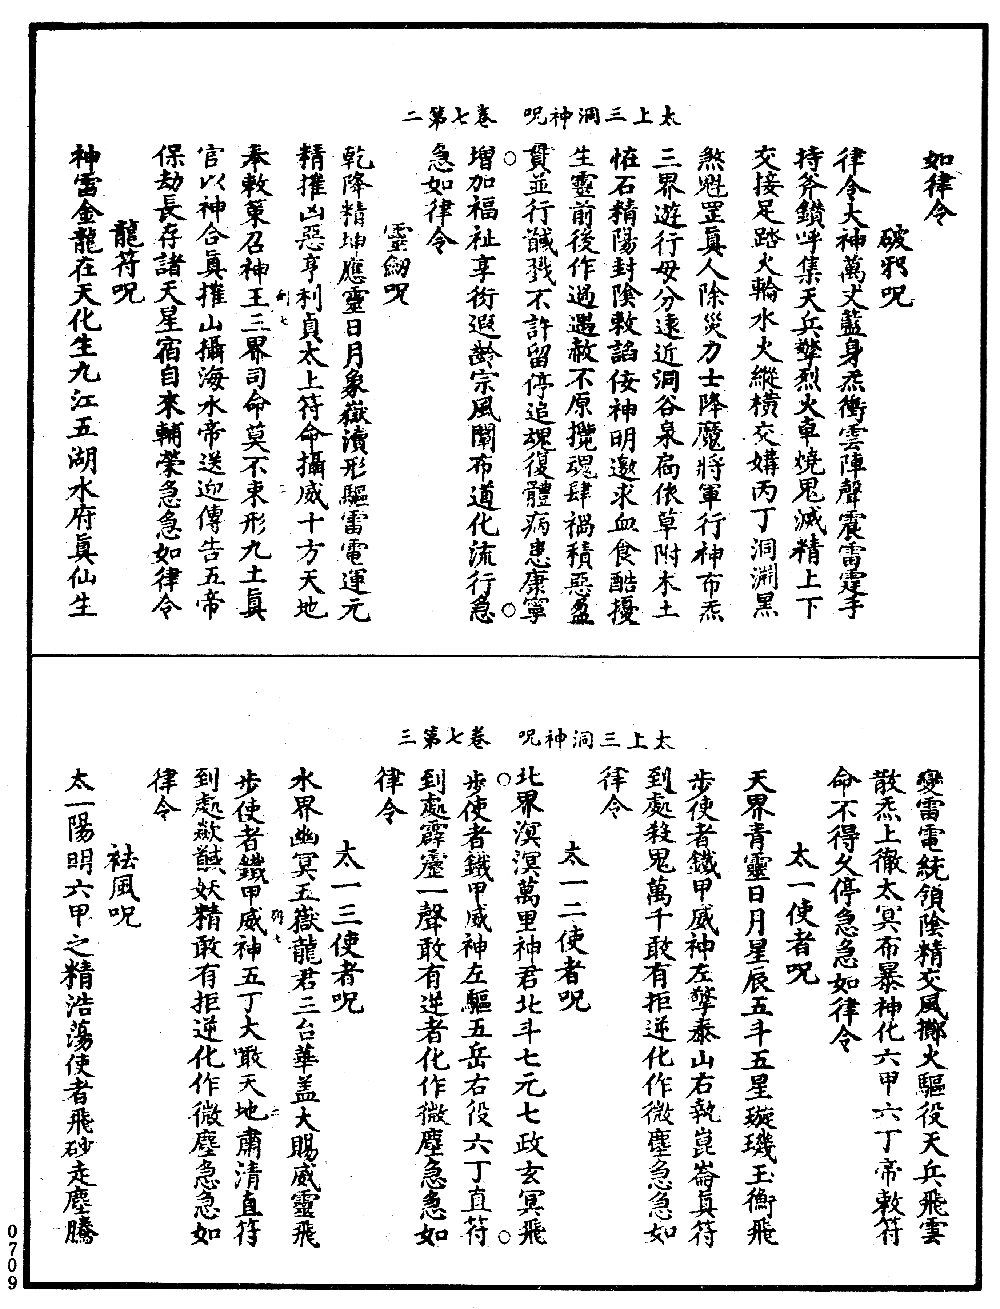 太上三洞神呪　卷七第二
如律令
破邪呪
律令大神萬丈藍身炁衝雲陣聲震雷霆手
持斧鑽呼集天兵擎烈火車燒鬼滅精上下
交接足踏火輪水火縱橫交媾丙丁洞淵黑
煞魁罡眞人除災力士降魔將軍行神布炁
三界遊行毋分遠近洞谷泉扃依草附木土
恠石精陽封陰敕諂佞神明邀求血食酷擾
生靈前後作過遇赦不原攬魂肆禍積惡盈
貫並行馘戮不許留停追魂復體病患康寧
增加福祉享衍遐齡宗風闡布道化流行急
急如律令
靈劒呪
乾降精坤應靈日月象嶽瀆形驅雷電運元
精摧凶惡亨利貞太上符命攝威十方天地
奉敕策召神王三界司命莫不束形九土眞
官以神合眞摧山攝海水帝送迎傳告五帝
保劫長存諸天星宿自來輔榮急急如律令
龍符呪
神雷金龍在天化生九江五湖水府眞仙生
太上三洞神呪　卷七第三
變雷電統領陰精交風擲火驅役天兵飛雲
散炁上徹太冥布暴神化六甲六丁帝敕符
命不得久停急急如律令
太一使者呪
天界青靈日月星辰五斗五星璇璣玉衡飛
步使者鐵甲威神左擎泰山右執崑崙眞符
到處殺鬼萬千敢有拒逆化作微塵急急如
律令
太一二使者呪
北界溟溟萬里神君北斗七元七政玄冥飛
步使者鐵甲威神左驅五岳右役六丁直符
到處霹靂一聲敢有逆者化作微塵急急如
律令
太一三使者呪
水界幽冥五嶽龍君三台華盖大賜威靈飛
步使者鐵甲威神五丁大㗋天地肅清直符
到處歘馘妖精敢有拒逆化作微塵急急如
律令
祛風呪
太一陽明六甲之精浩蕩使者飛砂走塵騰
0709